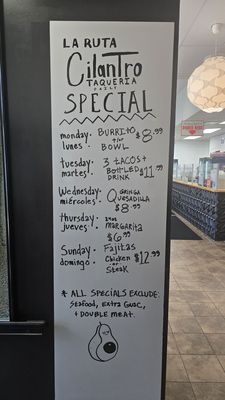 LA RUTA
CilanTro
TAQUERIA
SPECIAL
monday.
lunes.
BURRITO
BOWL
$8.99
tuesday.
martes.
3 TACOS +
BOTTLED
DRINK
$11.99
Wednesday.
miércoles.
GRINGA
QUESADILLA
$8.99
thursday.
jueves.
24oz
MARGARITA
$6.99
Sunday.
domingo.
Fajitas
Chicken
or
Steak
$12.99
* ALL SPECIALS EXCLUDE:
Seafood, Extra Guac,
+ DOUBLE MEAT.